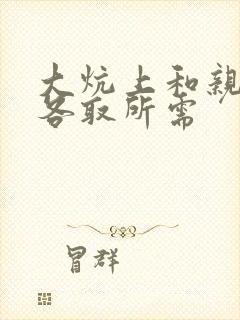 大炕上和亲
各取所需
冒群